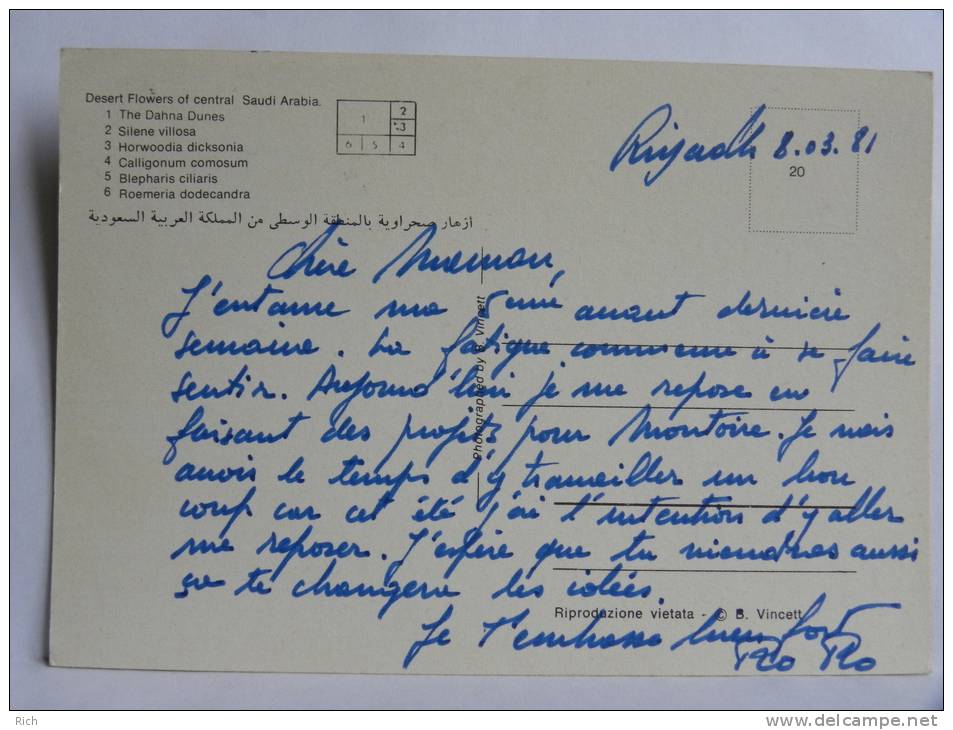 Desert Flowers of central Saudi Arabia.
1 The Dahna Dunes
2 Silene villosa
3 Horwoodia dicksonia
4 Calligonum comosum
5 Blepharis ciliaris
6 Roemeria dodecandra
1 2
3
6 5 4
ازهار صحراوية بالمنطقة الوسطى من المملكة العربية السعودية
Riyadh 8.03.81
20
Chère Maman,
J'entame ma 5ème avant dernière
semaine. La fatigue commence à se faire
sentir. Aujourd'hui je me repose en
faisant des projets pour Montoire. Je vais
avoir le temps d'y travailler un bon
coup car cet été j'ai l'intention d'y aller
me reposer. J'espère que tu viendras aussi
ça te changera les idées.
Je t'embrasse bien fort
Photographed by B. Vincett
Riproduzione vietata - © B. Vincett
Rich
www.delcampe.net